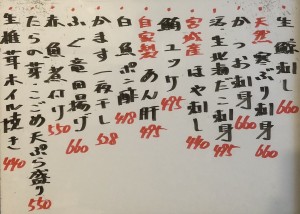 生鯨刺し 660
天然寒ぶり刺身 660
かつお刺身 660
活・生北海だこ刺身 495
宮城産ほや刺し 440
鮪ユッケ 495
自家製あん肝 495
白魚ポン酢 418
かます一夜干し 528
ふぐ竜田揚げ 660
赤魚煮付け 550
たらの芽・こごめ天ぷら盛り 550
生椎茸ホイル焼き 440